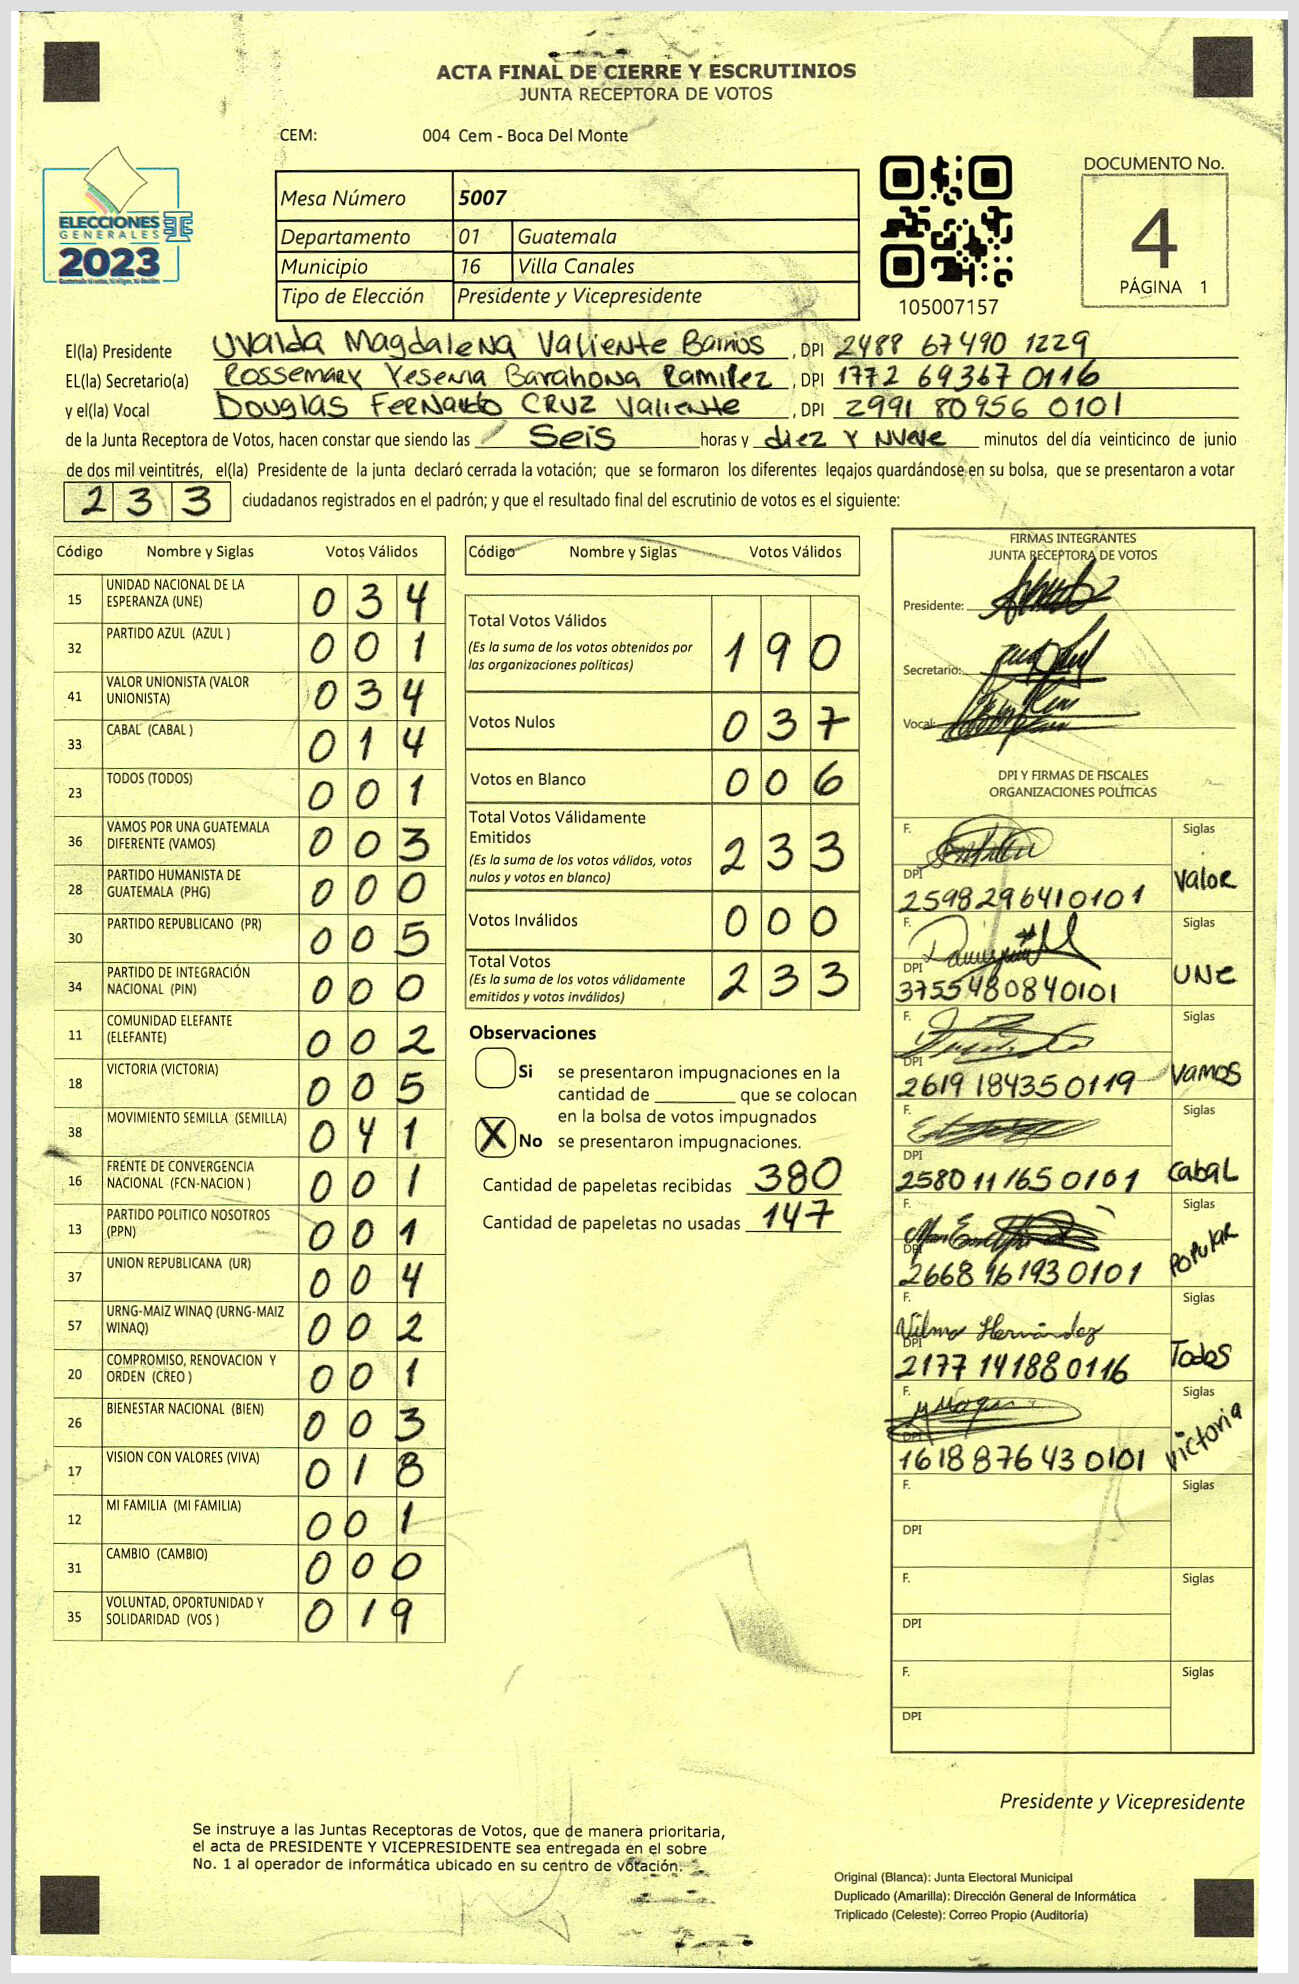 ACTA FINAL DE CIERRE Y ESCRUTINIOS
JUNTA RECEPTORA DE VOTOS
CEM: 004 Cem - Boca Del Monte
ELECCIONES
GENERALES
2023
Mesa Número 5007
Departamento 01 Guatemala
Municipio 16 Villa Canales
Tipo de Elección Presidente y Vicepresidente
105007157
DOCUMENTO No.
4
PÁGINA 1
El(la) Presidente Uvalda Magdalena Valiente Barrios , DPI 2488 67490 1229
EL(la) Secretario(a) Rossemary Yesenia Barahona Ramirez , DPI 1772 69367 0116
y el(la) Vocal Douglas Fernando Cruz Valiente , DPI 2991 80956 0101
de la Junta Receptora de Votos, hacen constar que siendo las Seis horas y diez y nueve minutos del día veinticinco de junio
de dos mil veintitrés, el(la) Presidente de la junta declaró cerrada la votación; que se formaron los diferentes legajos quardándose en su bolsa, que se presentaron a votar
233 ciudadanos registrados en el padrón; y que el resultado final del escrutinio de votos es el siguiente:
Código Nombre y Siglas Votos Válidos
15 UNIDAD NACIONAL DE LA ESPERANZA (UNE) 034
32 PARTIDO AZUL (AZUL ) 001
41 VALOR UNIONISTA (VALOR UNIONISTA) 034
33 CABAL (CABAL ) 014
23 TODOS (TODOS) 001
36 VAMOS POR UNA GUATEMALA DIFERENTE (VAMOS) 003
28 PARTIDO HUMANISTA DE GUATEMALA (PHG) 000
30 PARTIDO REPUBLICANO (PR) 005
34 PARTIDO DE INTEGRACIÓN NACIONAL (PIN) 000
11 COMUNIDAD ELEFANTE (ELEFANTE) 002
18 VICTORIA (VICTORIA) 005
38 MOVIMIENTO SEMILLA (SEMILLA) 041
16 FRENTE DE CONVERGENCIA NACIONAL (FCN-NACION ) 001
13 PARTIDO POLITICO NOSOTROS (PPN) 001
37 UNION REPUBLICANA (UR) 004
57 URNG-MAIZ WINAQ (URNG-MAIZ WINAQ) 002
20 COMPROMISO, RENOVACION Y ORDEN (CREO ) 001
26 BIENESTAR NACIONAL (BIEN) 003
17 VISION CON VALORES (VIVA) 018
12 MI FAMILIA (MI FAMILIA) 001
31 CAMBIO (CAMBIO) 000
35 VOLUNTAD, OPORTUNIDAD Y SOLIDARIDAD (VOS ) 019
Código Nombre y Siglas Votos Válidos
Total Votos Válidos 190
(Es la suma de los votos obtenidos por
las organizaciones políticas)
Votos Nulos 037
Votos en Blanco 006
Total Votos Válidamente
Emitidos 233
(Es la suma de los votos válidos, votos
nulos y votos en blanco)
Votos Inválidos 000
Total Votos 233
(Es la suma de los votos válidamente
emitidos y votos inválidos)
Observaciones
Si se presentaron impugnaciones en la
cantidad de ________ que se colocan
en la bolsa de votos impugnados
X No se presentaron impugnaciones.
Cantidad de papeletas recibidas 380
Cantidad de papeletas no usadas 147
FIRMAS INTEGRANTES
JUNTA RECEPTORA DE VOTOS
Presidente:
Secretario:
Vocal:
DPI Y FIRMAS DE FISCALES
ORGANIZACIONES POLÍTICAS
F. Siglas
DPI Valor
2598 29641 0101
F. Siglas
DPI UNE
3755480840101
F. Siglas
DPI Vamos
2619 18435 0119
F. Siglas
DPI Cabal
2580 11165 0101
F. Siglas
DPI Popular
2668 96193 0101
F. Siglas
Vilma Hernández
DPI Todos
2177 14188 0116
F. Siglas
DPI Victoria
1618 87643 0101
F. Siglas
DPI
F. Siglas
DPI
F. Siglas
DPI
Presidente y Vicepresidente
Se instruye a las Juntas Receptoras de Votos, que de manera prioritaria,
el acta de PRESIDENTE Y VICEPRESIDENTE sea entregada en el sobre
No. 1 al operador de informática ubicado en su centro de votación.
Original (Blanca): Junta Electoral Municipal
Duplicado (Amarilla): Dirección General de Informática
Triplicado (Celeste): Correo Propio (Auditoría)